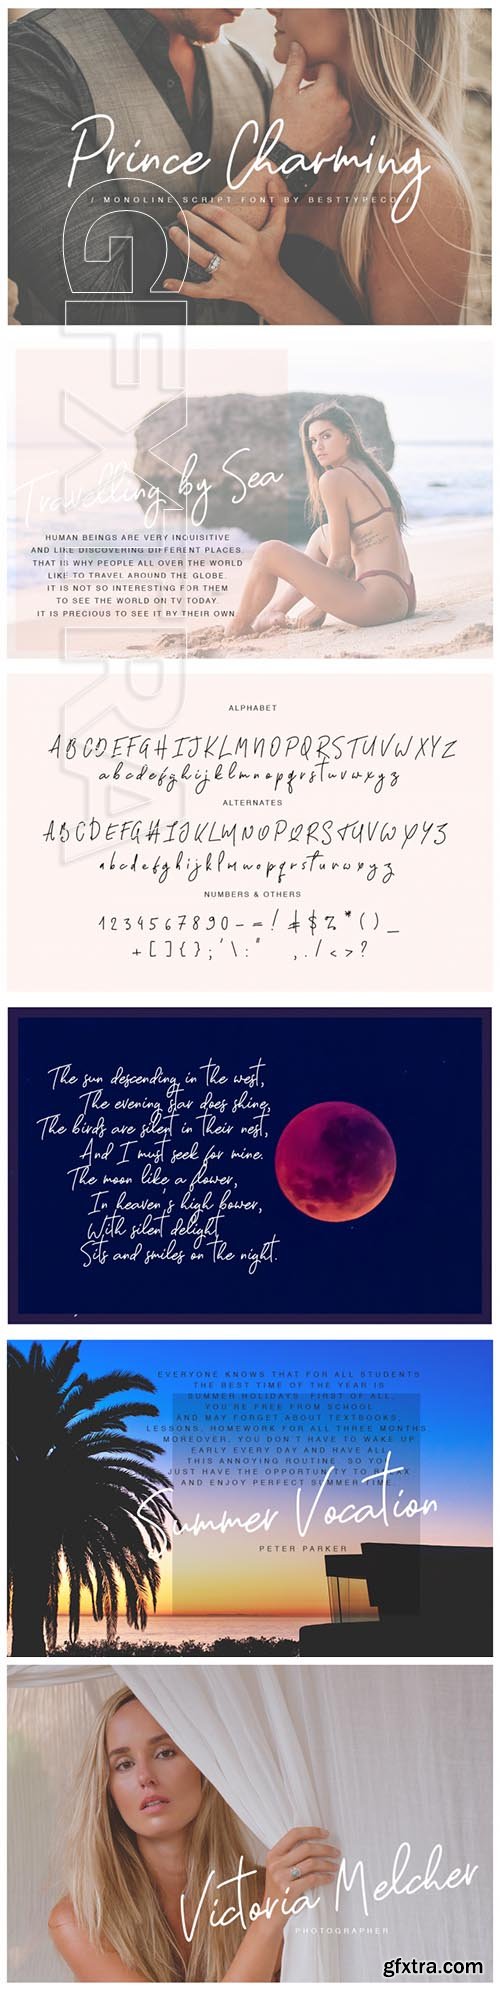 Prince Charming
/ MONOLINE SCRIPT FONT BY BESTTYPECO /
GFXTRA
Travelling by Sea
HUMAN BEINGS ARE VERY INQUISITIVE
AND LIKE DISCOVERING DIFFERENT PLACES.
THAT IS WHY PEOPLE ALL OVER THE WORLD
LIKE TO TRAVEL AROUND THE GLOBE.
IT IS NOT SO INTERESTING FOR THEM
TO SEE THE WORLD ON TV TODAY.
IT IS PRECIOUS TO SEE IT BY THEIR OWN.
ALPHABET
ABCDEFGHIJKLMNOPQRSTUVWXYZ
abcdefghijklmnopqrstuvwxyz
ALTERNATES
ABCDEFGHIJKLMNOPQRSTUVWXYZ
abcdefghijklmnopqrstuvwxyz
NUMBERS & OTHERS
1234567890-=!#$%*()_
+[]{};'\:" ,./<>?
The sun descending in the west,
The evening star does shine,
The birds are silent in their nest,
And I must seek for mine.
The moon like a flower,
In heaven's high bower,
With silent delight
Sits and smiles on the night.
EVERYONE KNOWS THAT FOR ALL STUDENTS
THE BEST TIME OF THE YEAR IS
SUMMER HOLIDAYS. FIRST OF ALL,
YOU'RE FREE FROM SCHOOL
AND MAY FORGET ABOUT TEXTBOOKS,
LESSONS, HOMEWORK FOR ALL THREE MONTHS.
MOREOVER, YOU DON'T HAVE TO WAKE UP
EARLY EVERY DAY AND HAVE ALL
THIS ANNOYING ROUTINE. SO YOU
JUST HAVE THE OPPORTUNITY TO RELAX
AND ENJOY PERFECT SUMMER TIME.
Summer Vocation
PETER PARKER
Victoria Melcher
PHOTOGRAPHER
gfxtra.com